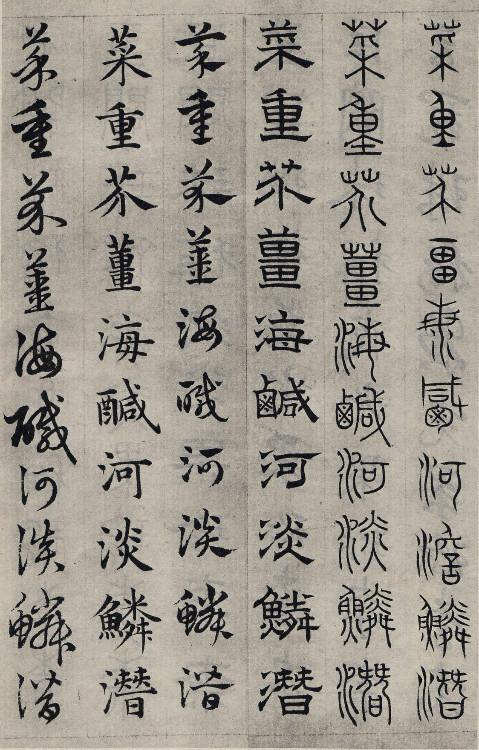 菜重芥薑海鹹河淡鱗潛
菜重芥薑海鹹河淡鱗潛
菜重芥薑海鹹河淡鱗潛
菜重芥薑海醎河淡鱗潛
菜重芥薑海醎河淡鱗潛
菜重芥薑海碱河淡鱗潛